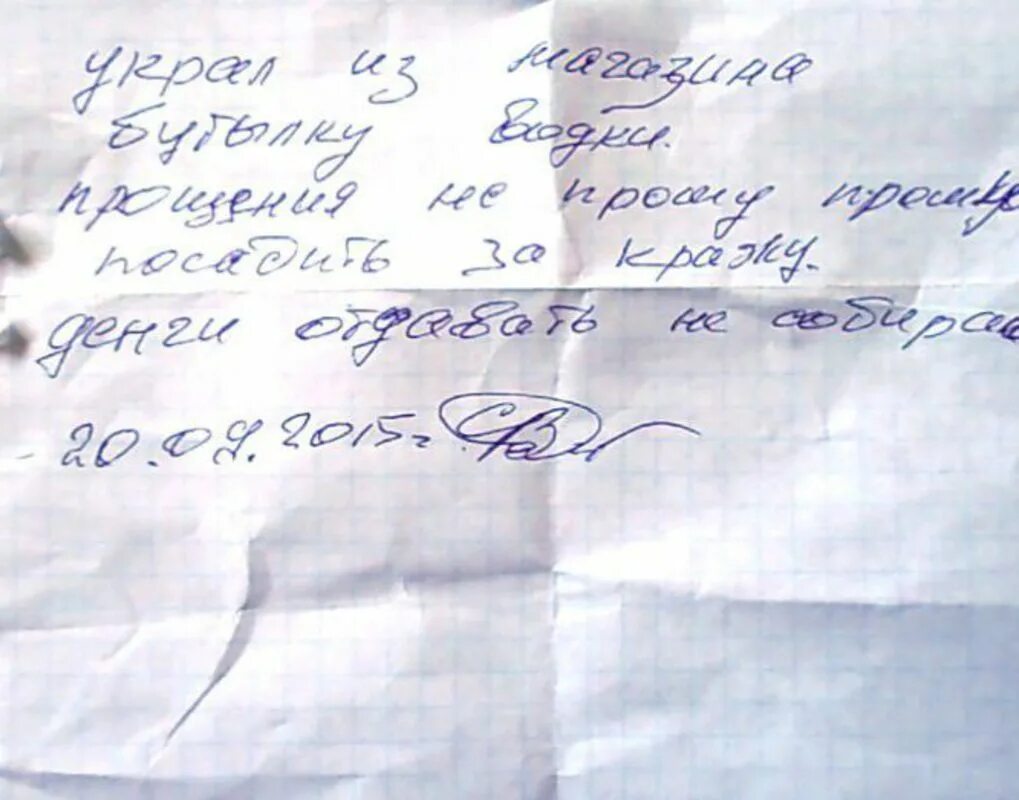 украл из магазина
бутылку водки.
прощения не прошу прошу
посадить за кражу.
денги отдавать не собираю
20.09.2015г.